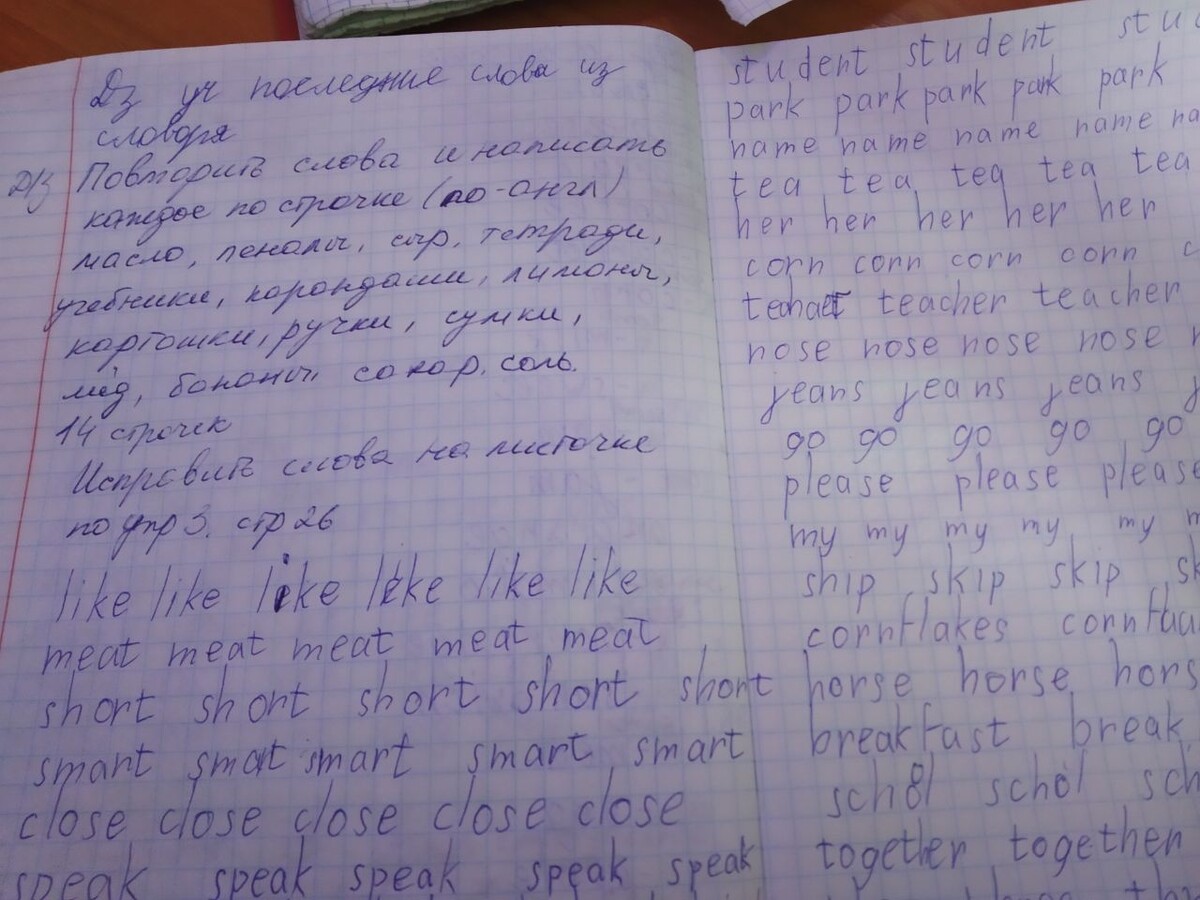 Дз уч последние слова из
словоря
Д/з Повторить слова и написать
каждое по строчке (по-англ)
масло, пеналы, сыр, тетради,
учебники, карандаши, лимоны,
картошки, ручки, сумки,
мёд, бананы, сахар, соль.
14 строчек
Исправить слова на листочке
по упр 3. стр 26
like like like like like like
meat meat meat meat meat
short short short short short
smart smart smart smart smart
close close close close close
speak speak speak speak speak
student student stu
park park park park park
name name name name na
tea tea tea tea tea
her her her her her
corn corn corn corn c
teacher teacher
nose nose nose nose
jeans jeans jeans j
go go go go go
please please please
my my my my my m
ship skip skip sk
cornflakes
horse horse hors
breakfast break
schol schol sch
together together